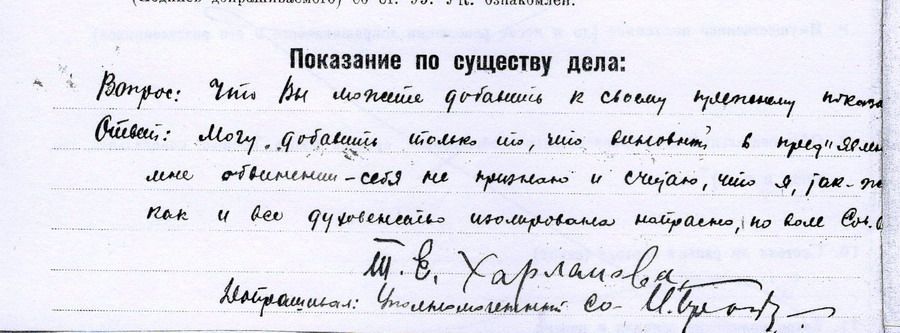 (Подпись допрашиваемого) со ст. 95. УК. ознакомлен.
Показание по существу дела:
Вопрос: Что Вы можете добавить к своему прежнему показа
Ответ: Могу добавить только то, что виновной в пред"явлен
мне обвинении - себя не признаю и считаю, что я, так-же
как и все духовенство изолирована напрасно, по воле Сов.
Т. Е. Харламова
Допрашивал: Уполномоченный СО